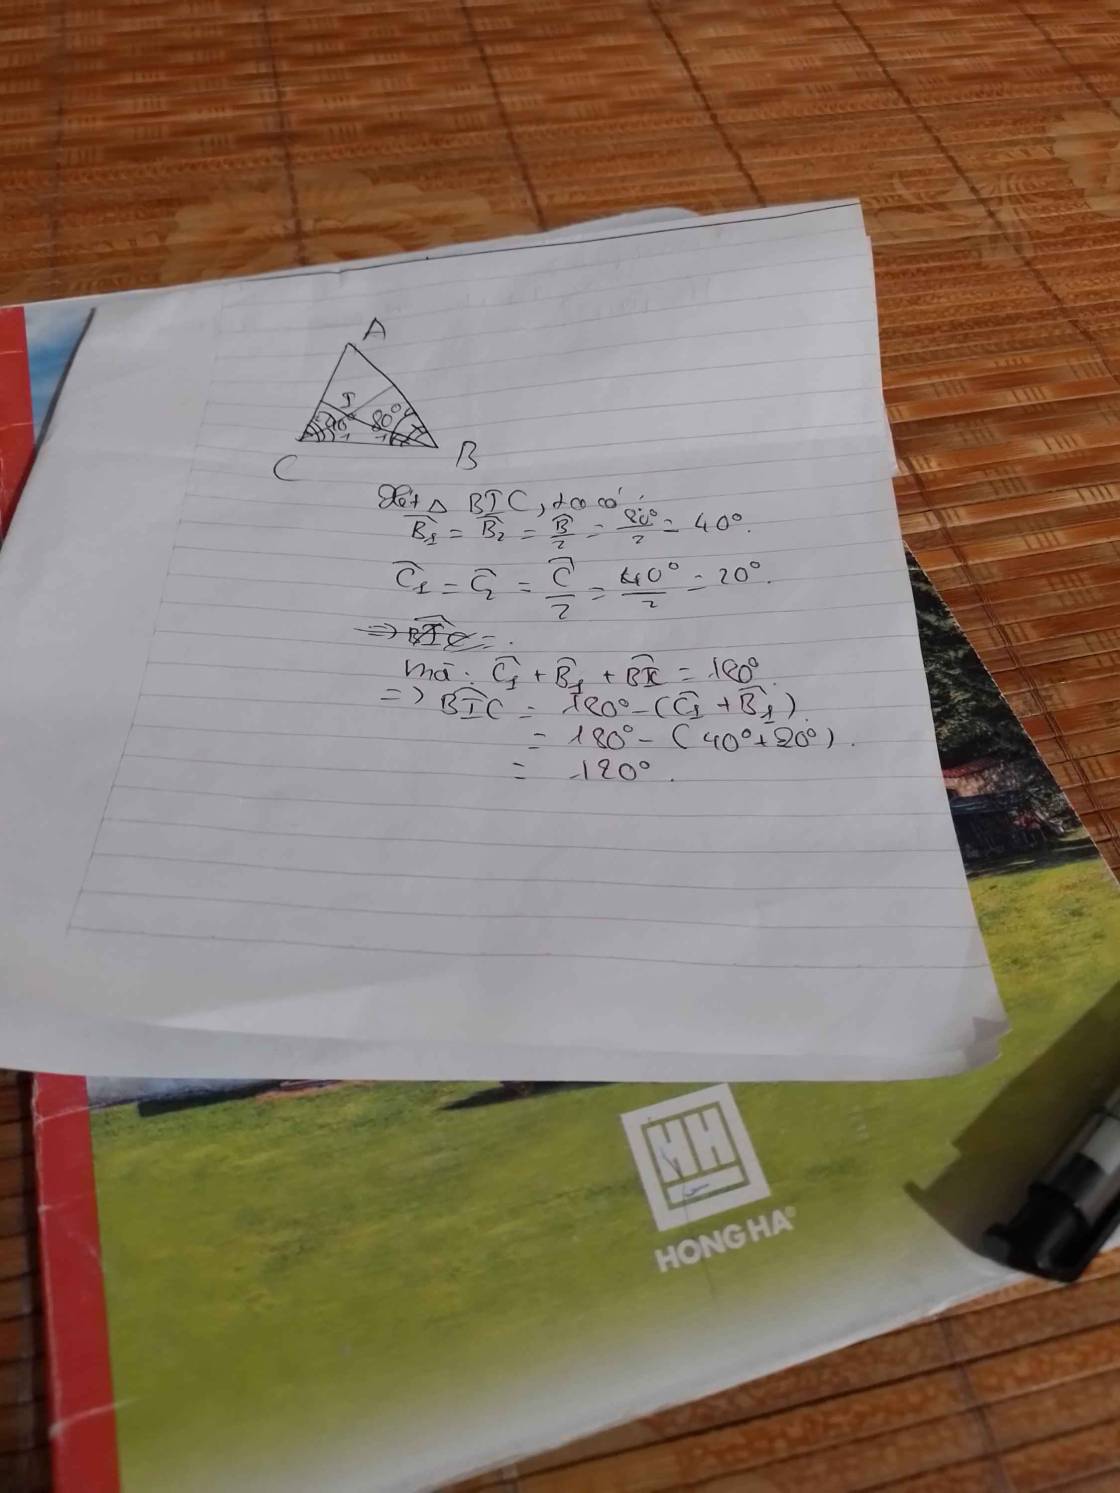 A
I
40° 80°
1 1
C B
Xét △ BIC, ta có:
B̂₁ = B̂₂ = B̂/2 = 80°/2 = 40°.
Ĉ₁ = Ĉ₂ = Ĉ/2 = 40°/2 = 20°.
mà: Ĉ₁ + B̂₁ + BIC = 180°
=> BIC = 180° - (Ĉ₁ + B̂₁).
= 180° - (40° + 20°).
= 120°.
HH
HONG HA®